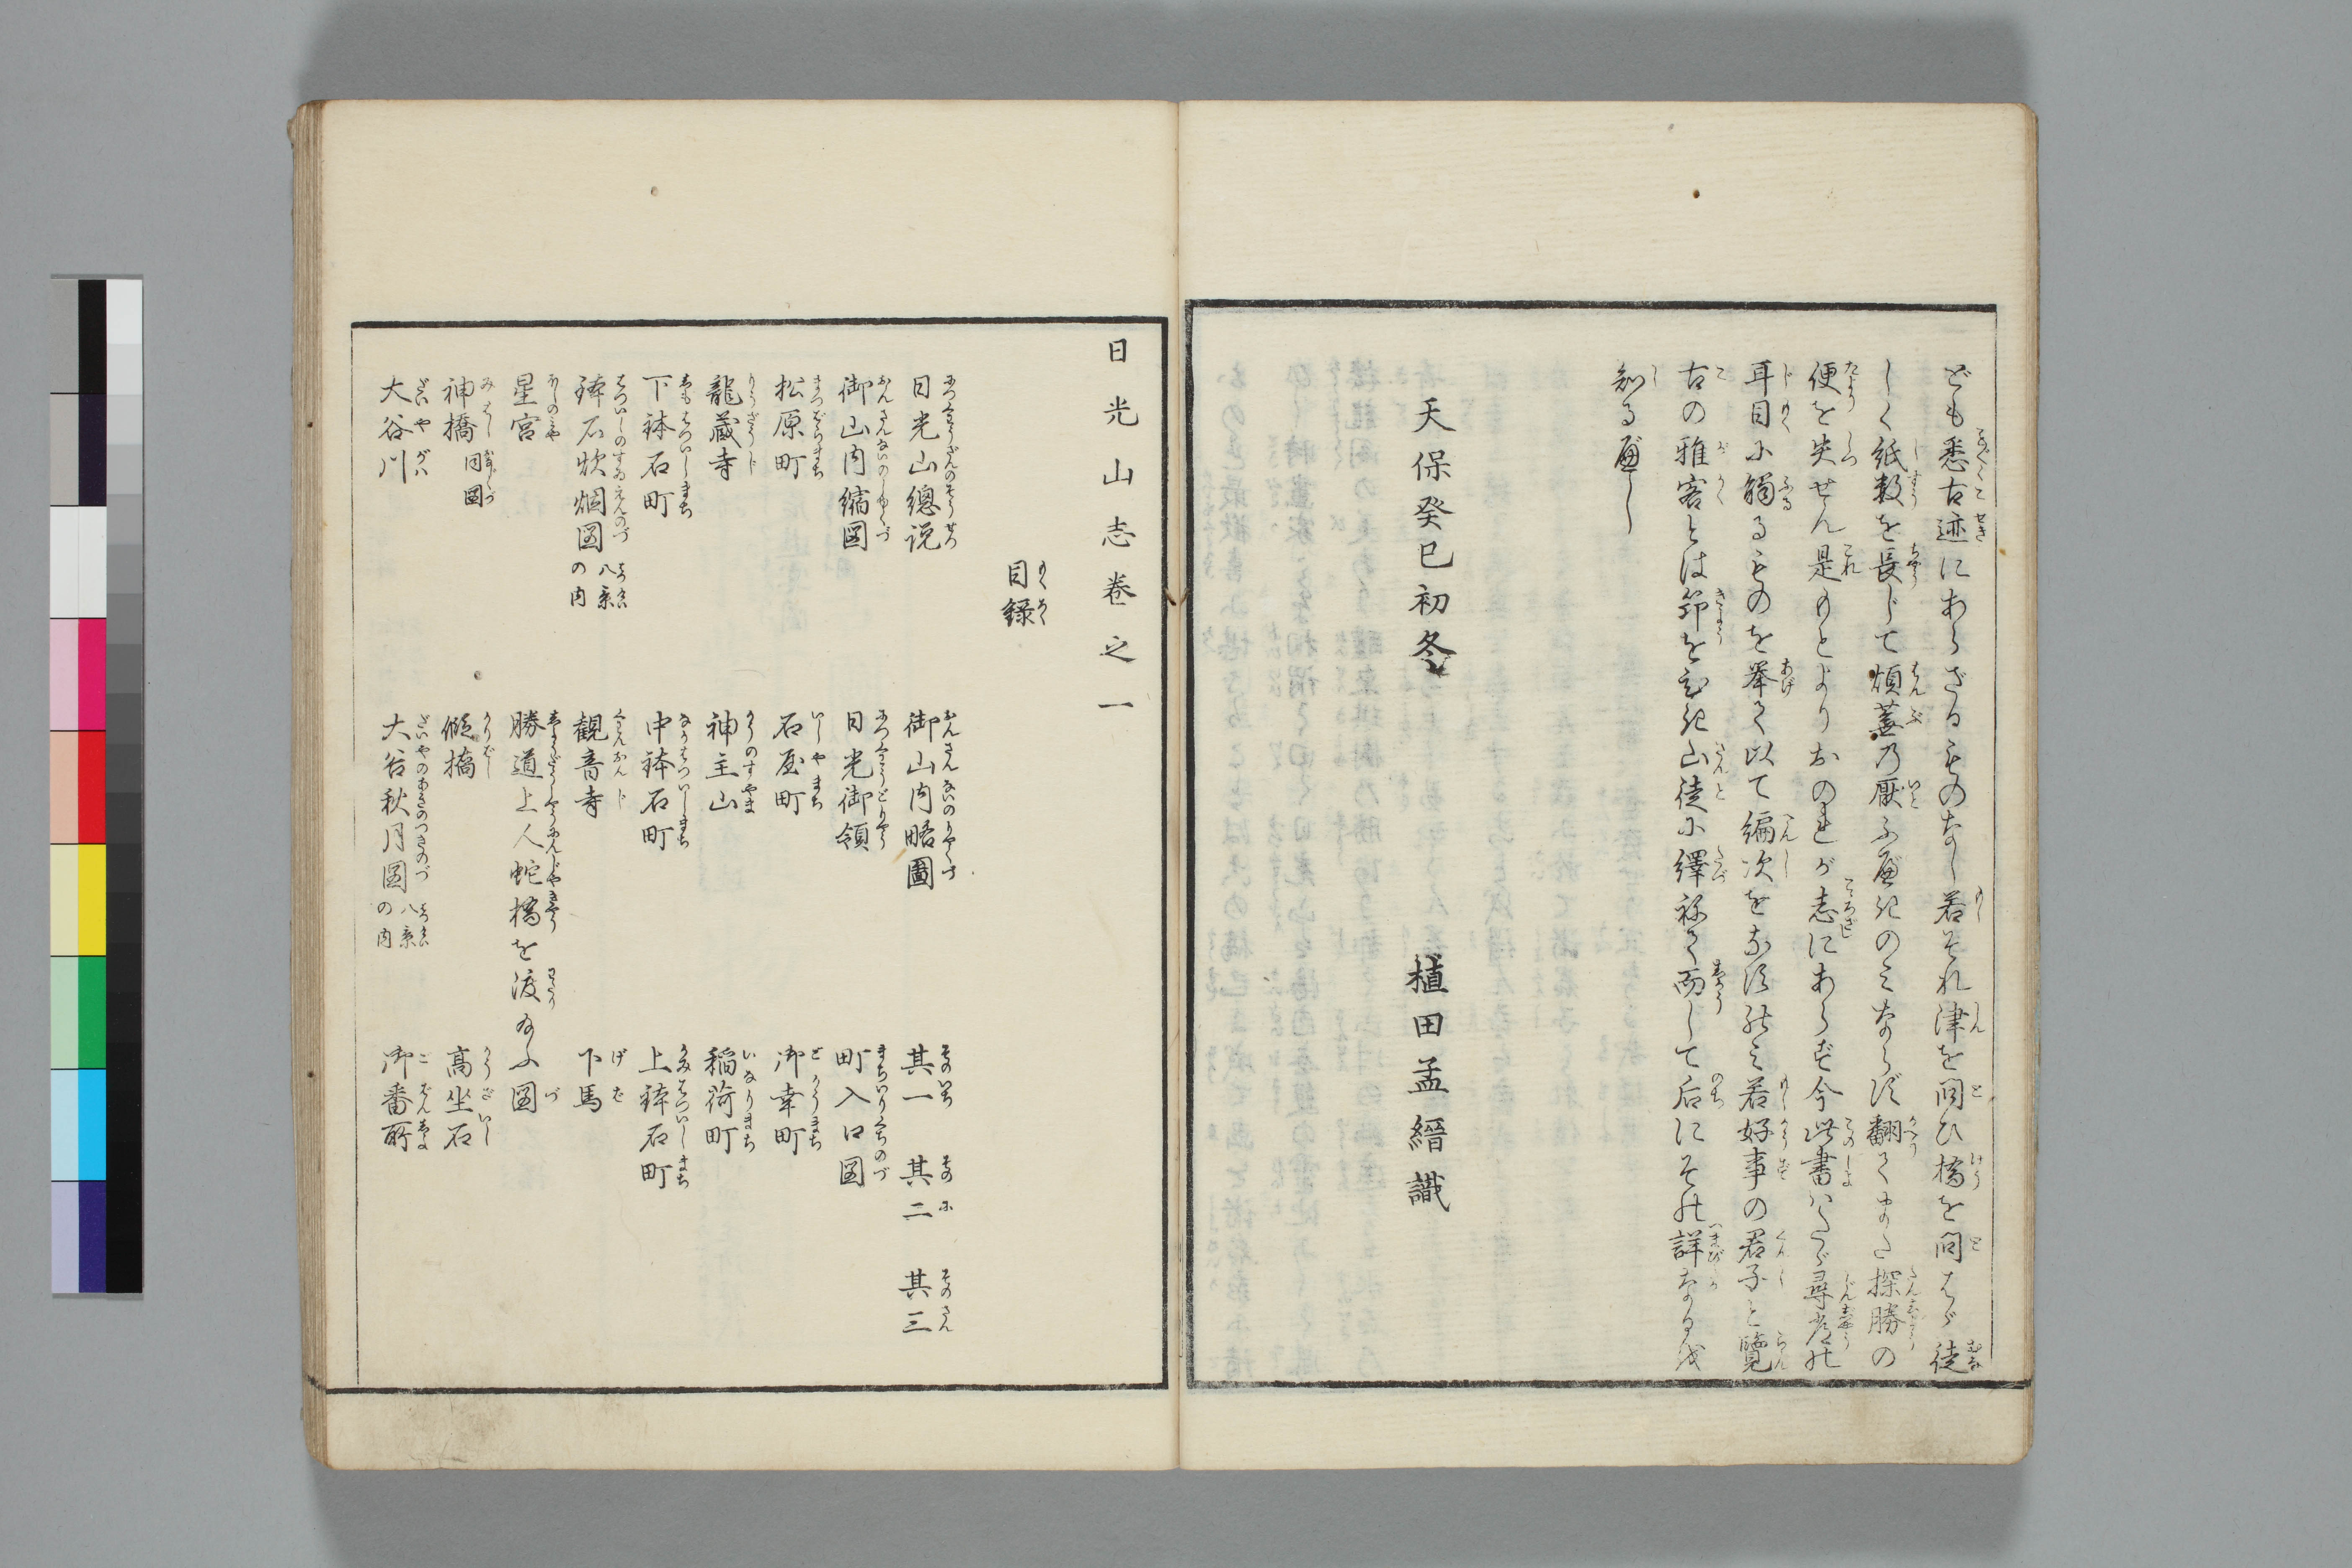 ども悉古迹にあらざるものなし若それ津を問ひ橋を問はゞ徒
しく紙数を長じて煩蓋乃厭ふ可きのミならず翻て探勝の
便を失せん是もとよりおのれが志にあらず今此書ハたゞ尋常の
耳目に觸るものを挙て以て編次をなすのミ若好事の君子と覧
古の雅客とは節を山徒に繹ねて而して后にその詳なるを
知るべし
天保癸巳初冬
植田孟縉識
日光山志巻之一
目録
日光山總説
御山内略圖
其一
其二
其三
御山内縮図
日光御領
町入口図
松原町
石屋町
御幸町
龍蔵寺
神主山
稲荷町
下鉢石町
中鉢石町
上鉢石町
鉢石炊烟図 八景の内
観音寺
下馬
星宮
勝道上人蛇橋を渡給ふ図
神橋 同図
假橋
高坐石
大谷川
大谷秋月図 八景の内
御番所